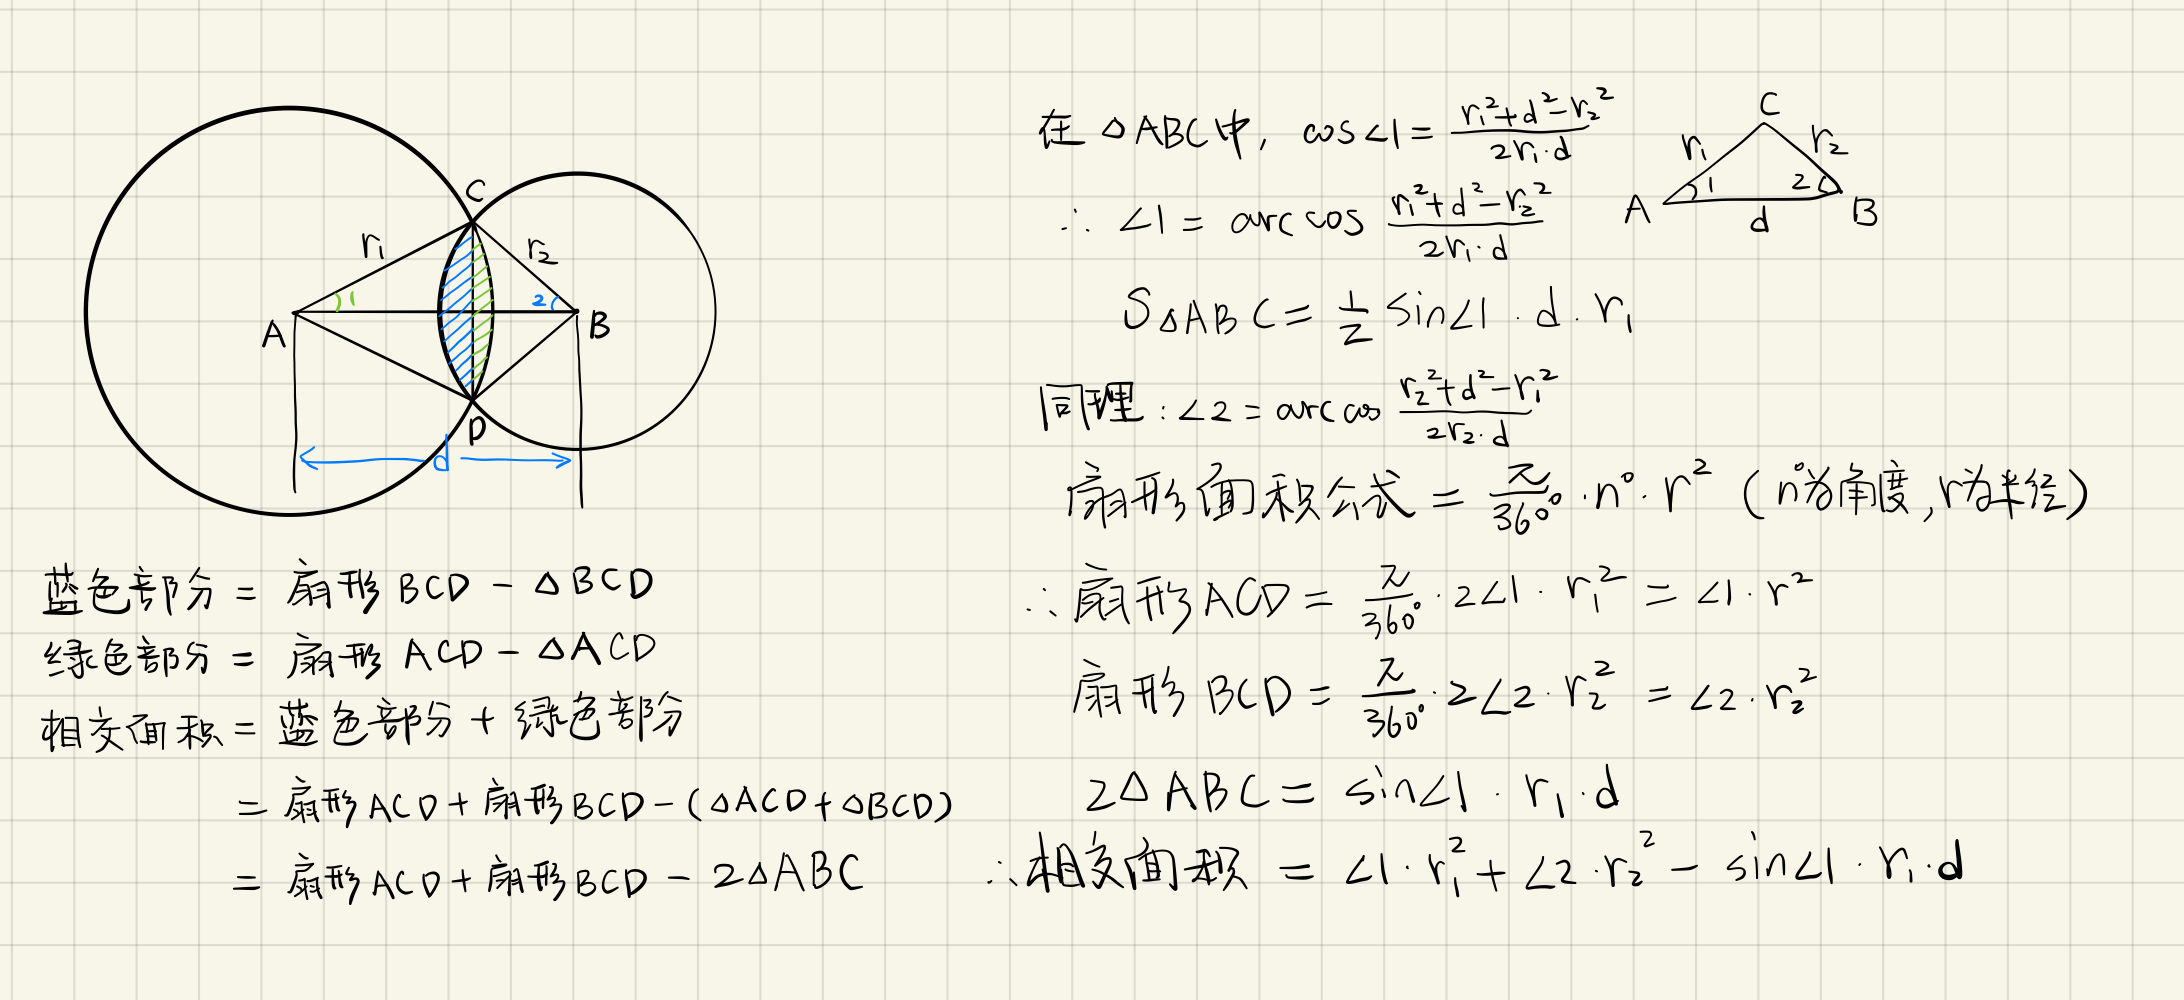 C
r₁
r₂
1
2
A
B
D
d
蓝色部分 = 扇形 BCD - △BCD
绿色部分 = 扇形 ACD - △ACD
相交面积 = 蓝色部分 + 绿色部分
= 扇形ACD + 扇形BCD - (△ACD + △BCD)
= 扇形ACD + 扇形BCD - 2△ABC
在 △ABC中, cos∠1 = (r₁²+d²-r₂²)/(2r₁·d)
∴ ∠1 = arccos (r₁²+d²-r₂²)/(2r₁·d)
S△ABC = 1/2 sin∠1 · d · r₁
同理: ∠2 = arccos (r₂²+d²-r₁²)/(2r₂·d)
扇形面积公式 = π/360° · n° · r² (n°为角度, r为半径)
∴ 扇形ACD = π/360° · 2∠1 · r₁² = ∠1 · r²
扇形 BCD = π/360° · 2∠2 · r₂² = ∠2 · r₂²
2△ABC = sin∠1 · r₁ · d
∴ 相交面积 = ∠1 · r₁² + ∠2 · r₂² - sin∠1 · r₁ · d
C
r₁
r₂
1
2
A
B
d